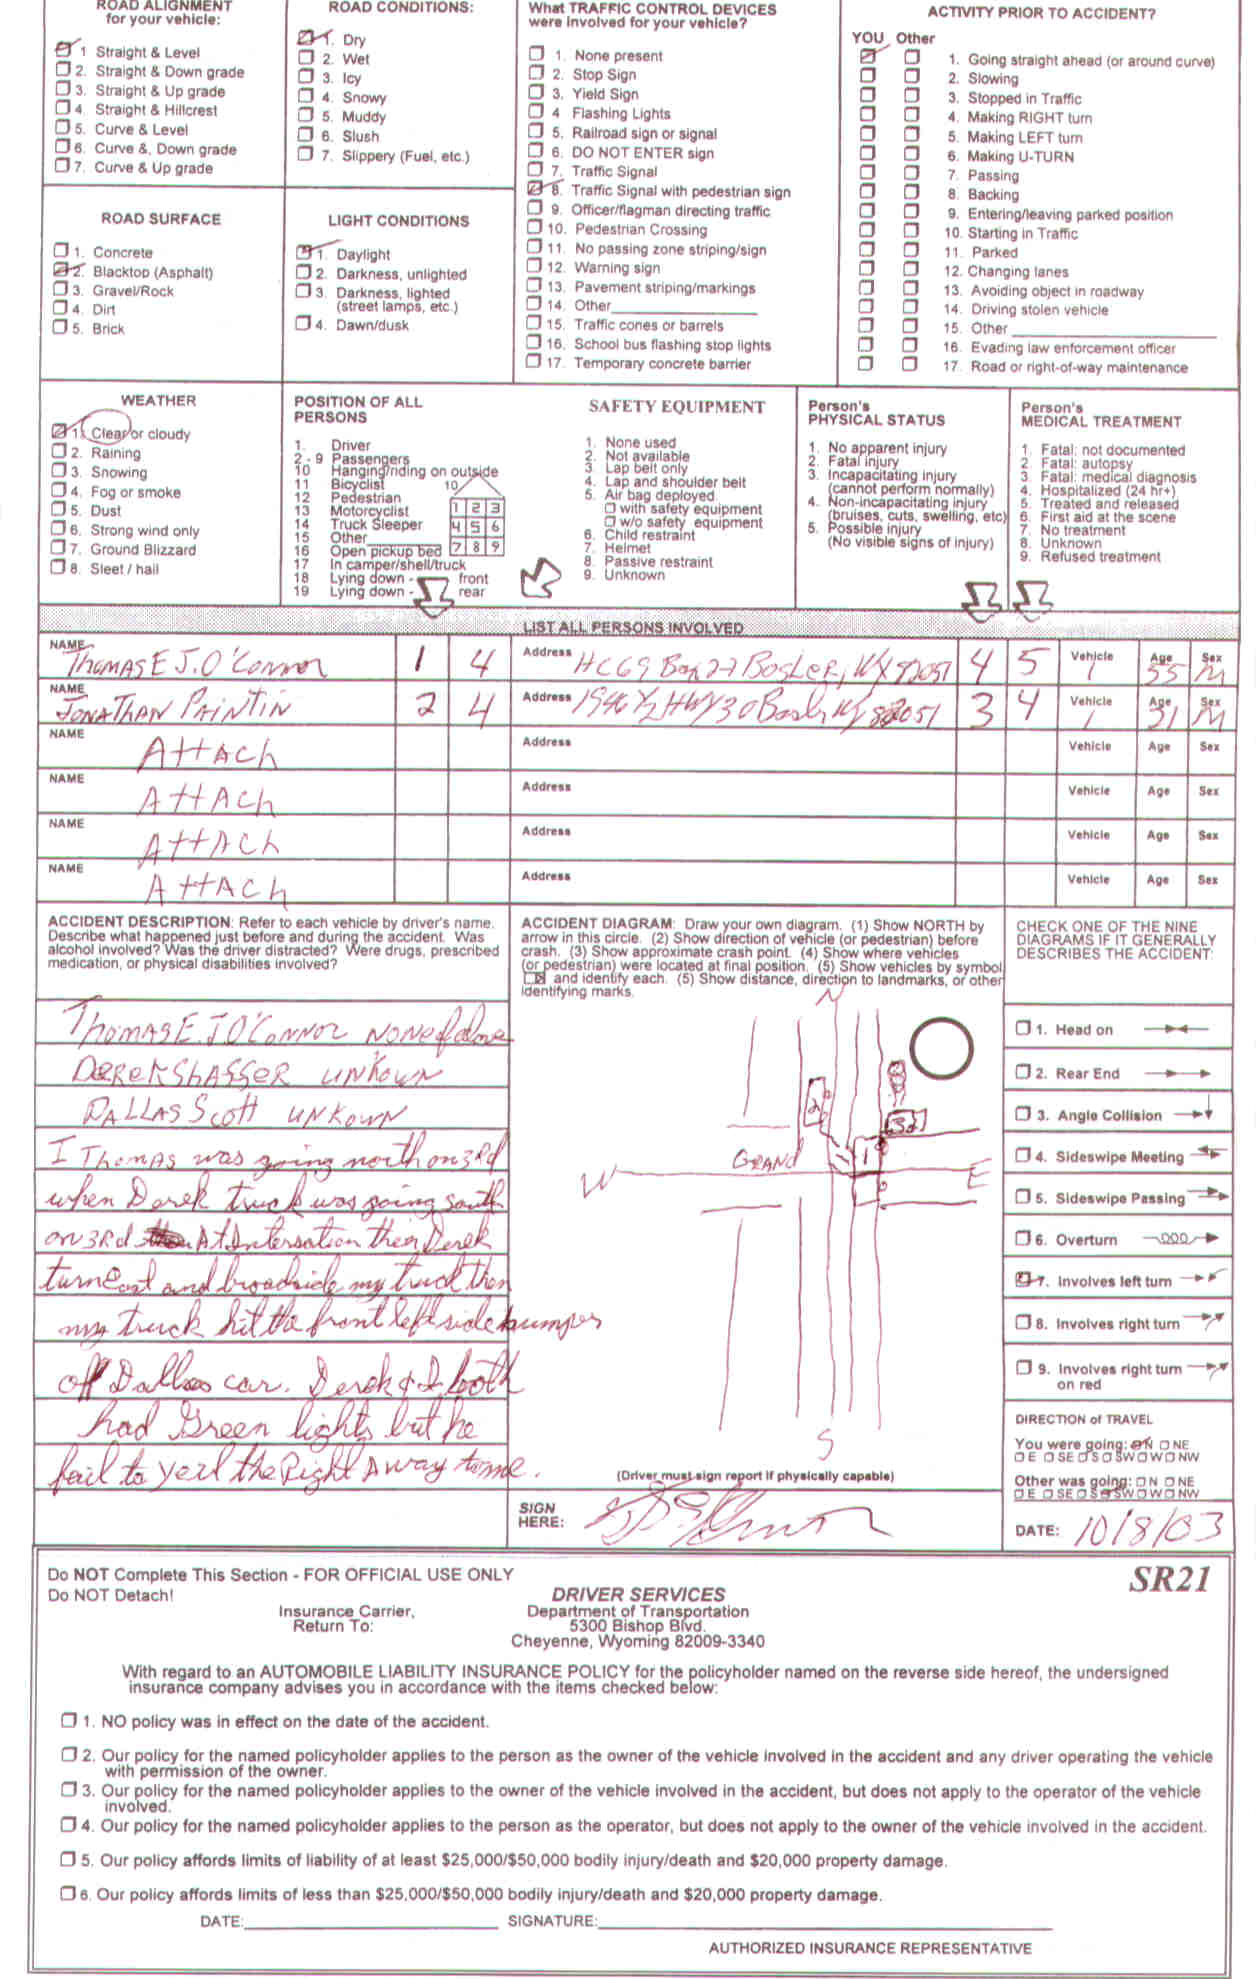 ROAD ALIGNMENT
for your vehicle:
1 Straight & Level
2. Straight & Down grade
3. Straight & Up grade
4. Straight & Hillcrest
5. Curve & Level
6. Curve &, Down grade
7. Curve & Up grade
ROAD CONDITIONS:
1. Dry
2. Wet
3. Icy
4. Snowy
5. Muddy
6. Slush
7. Slippery (Fuel, etc.)
What TRAFFIC CONTROL DEVICES
were involved for your vehicle?
1. None present
2. Stop Sign
3. Yield Sign
4 Flashing Lights
5. Railroad sign or signal
6. DO NOT ENTER sign
7. Traffic Signal
8. Traffic Signal with pedestrian sign
9. Officer/flagman directing traffic
10. Pedestrian Crossing
11. No passing zone striping/sign
12. Warning sign
13. Pavement striping/markings
14. Other
15. Traffic cones or barrels
16. School bus flashing stop lights
17. Temporary concrete barrier
ACTIVITY PRIOR TO ACCIDENT?
YOU Other
1. Going straight ahead (or around curve)
2. Slowing
3. Stopped in Traffic
4. Making RIGHT turn
5. Making LEFT turn
6. Making U-TURN
7. Passing
8. Backing
9. Entering/leaving parked position
10. Starting in Traffic
11. Parked
12. Changing lanes
13. Avoiding object in roadway
14. Driving stolen vehicle
15. Other
16. Evading law enforcement officer
17. Road or right-of-way maintenance
ROAD SURFACE
1. Concrete
2. Blacktop (Asphalt)
3. Gravel/Rock
4. Dirt
5. Brick
LIGHT CONDITIONS
1. Daylight
2. Darkness, unlighted
3. Darkness, lighted
(street lamps, etc.)
4. Dawn/dusk
WEATHER
1. Clear or cloudy
2. Raining
3. Snowing
4. Fog or smoke
5. Dust
6. Strong wind only
7. Ground Blizzard
8. Sleet / hail
POSITION OF ALL
PERSONS
1. Driver
2 - 9 Passengers
10 Hanging/riding on outside
11 Bicyclist
12 Pedestrian
13 Motorcyclist
14 Truck Sleeper
15 Other
16 Open pickup bed
17 In camper/shell/truck
18 Lying down - front
19 Lying down - rear
10
1 2 3
4 5 6
7 8 9
SAFETY EQUIPMENT
1. None used
2. Not available
3. Lap belt only
4. Lap and shoulder belt
5. Air bag deployed
with safety equipment
w/o safety equipment
6. Child restraint
7. Helmet
8. Passive restraint
9. Unknown
Person's
PHYSICAL STATUS
1. No apparent injury
2. Fatal injury
3. Incapacitating injury
(cannot perform normally)
4. Non-incapacitating injury
(bruises, cuts, swelling, etc)
5. Possible injury
(No visible signs of injury)
Person's
MEDICAL TREATMENT
1. Fatal: not documented
2. Fatal: autopsy
3. Fatal: medical diagnosis
4. Hospitalized (24 hr+)
5. Treated and released
6. First aid at the scene
7. No treatment
8. Unknown
9. Refused treatment
LIST ALL PERSONS INVOLVED
NAME Thomas E J. O'Connor 1 4 Address HC 69 Box 27 Bosler, WY 82051 4 5 Vehicle 1 Age 55 Sex M
NAME JONATHAN PAINTIN 2 4 Address 1946 1/2 HWY 30 Bosler, WY 82051 3 4 Vehicle 1 Age 21 Sex M
NAME ATTACH Address Vehicle Age Sex
NAME ATTACH Address Vehicle Age Sex
NAME ATTACH Address Vehicle Age Sex
NAME ATTACH Address Vehicle Age Sex
ACCIDENT DESCRIPTION: Refer to each vehicle by driver's name.
Describe what happened just before and during the accident. Was
alcohol involved? Was the driver distracted? Were drugs, prescribed
medication, or physical disabilities involved?
Thomas E. J O'Connor None of above
DEREK SHASSER UNKOWN
DALLAS Scott UNKOWN
I Thomas was going north on 3Rd
when Derek truck was going south
on 3Rd At Intersation then Derek
turn East and broadside my truck then
my truck hit the front left side bumper
off Dallas car. Derek & I both
had Green lights but he
fail to yeil the Right A way to me.
ACCIDENT DIAGRAM: Draw your own diagram. (1) Show NORTH by
arrow in this circle. (2) Show direction of vehicle (or pedestrian) before
crash. (3) Show approximate crash point. (4) Show where vehicles
(or pedestrian) were located at final position. (5) Show vehicles by symbol
and identify each. (5) Show distance, direction to landmarks, or other
identifying marks.
N
2
3
GRAND
1
W
E
S
(Driver must sign report if physically capable)
SIGN
HERE:
CHECK ONE OF THE NINE
DIAGRAMS IF IT GENERALLY
DESCRIBES THE ACCIDENT:
1. Head on
2. Rear End
3. Angle Collision
4. Sideswipe Meeting
5. Sideswipe Passing
6. Overturn
7. Involves left turn
8. Involves right turn
9. Involves right turn
on red
DIRECTION of TRAVEL
You were going: N NE
E SE S SW W NW
Other was going: N NE
E SE S SW W NW
DATE: 10/8/03
Do NOT Complete This Section - FOR OFFICIAL USE ONLY
Do NOT Detach!
SR21
Insurance Carrier,
Return To:
DRIVER SERVICES
Department of Transportation
5300 Bishop Blvd.
Cheyenne, Wyoming 82009-3340
With regard to an AUTOMOBILE LIABILITY INSURANCE POLICY for the policyholder named on the reverse side hereof, the undersigned
insurance company advises you in accordance with the items checked below:
1. NO policy was in effect on the date of the accident.
2. Our policy for the named policyholder applies to the person as the owner of the vehicle involved in the accident and any driver operating the vehicle
with permission of the owner.
3. Our policy for the named policyholder applies to the owner of the vehicle involved in the accident, but does not apply to the operator of the vehicle
involved.
4. Our policy for the named policyholder applies to the person as the operator, but does not apply to the owner of the vehicle involved in the accident.
5. Our policy affords limits of liability of at least $25,000/$50,000 bodily injury/death and $20,000 property damage.
6. Our policy affords limits of less than $25,000/$50,000 bodily injury/death and $20,000 property damage.
DATE: SIGNATURE:
AUTHORIZED INSURANCE REPRESENTATIVE